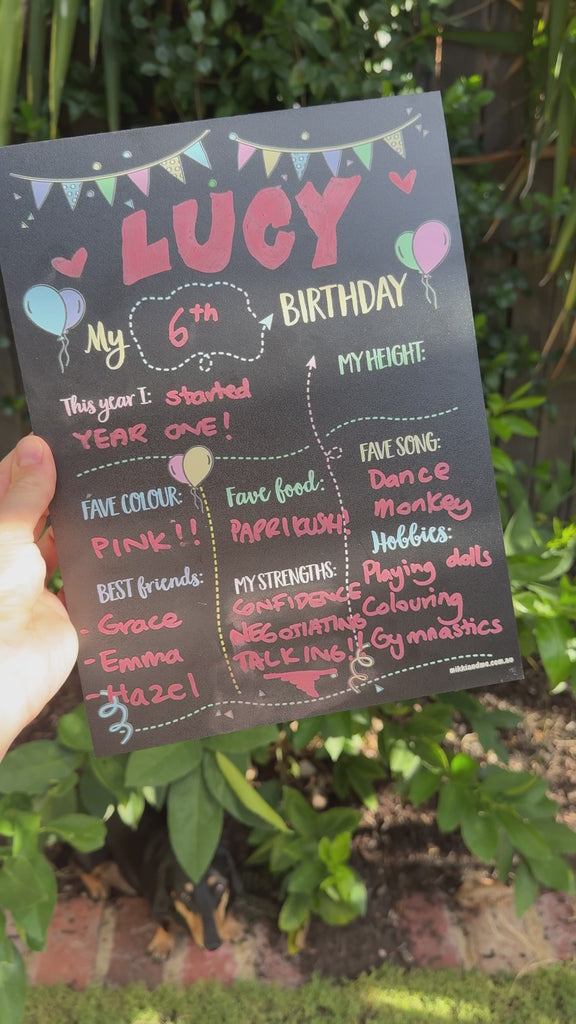 LUCY
My 6th BIRTHDAY
MY HEIGHT:
This year I: started
YEAR ONE!
FAVE COLOUR:
PINK!!
Fave food:
PAPRIKUSH!
FAVE SONG:
Dance
monkey
Hobbies:
Playing dolls
Colouring
Gymnastics
BEST friends:
- Grace
- Emma
- Hazel
MY STRENGTHS:
CONFIDENCE
NEGOTIATING
TALKING!!
mikkiandme.com.au